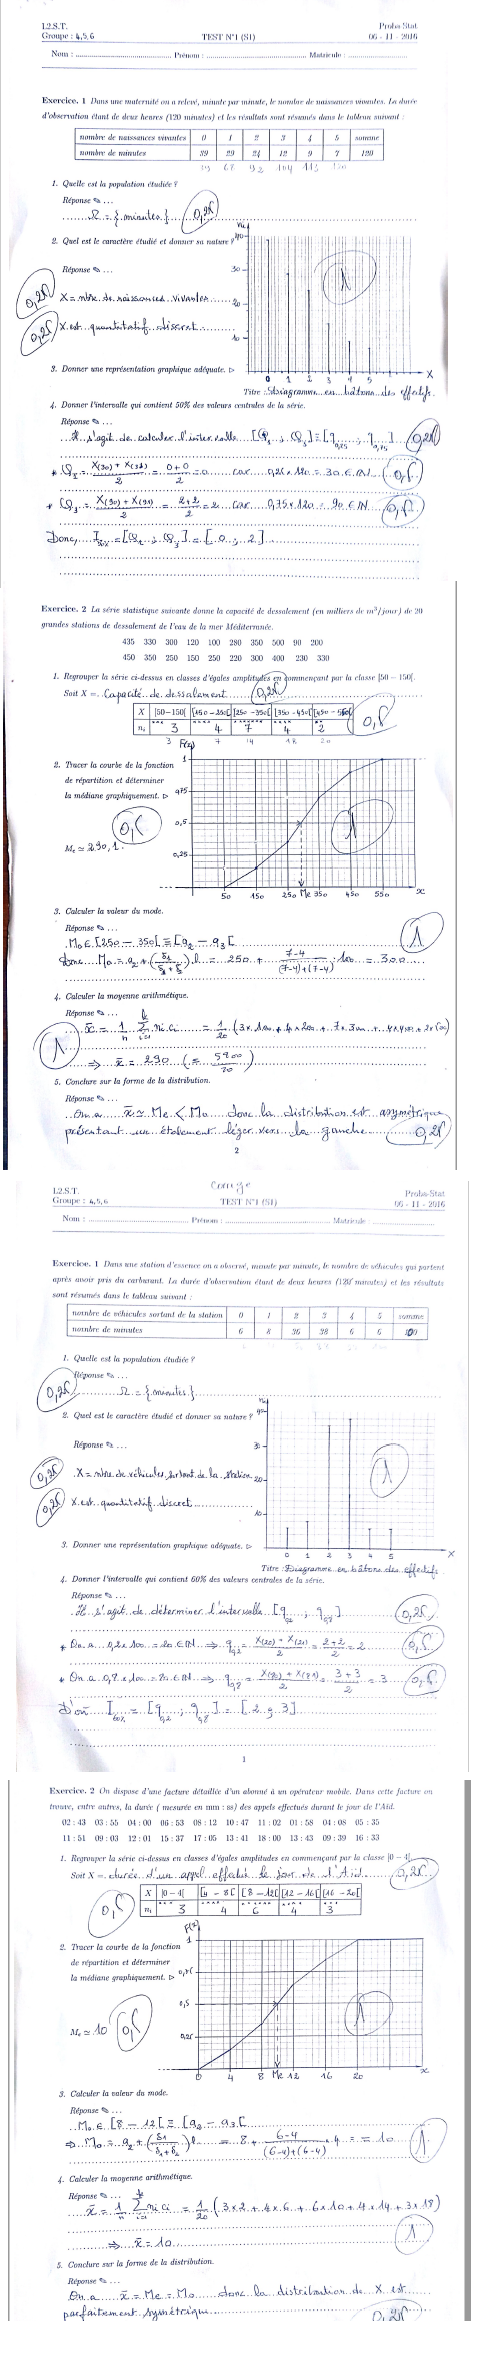 I.2.S.T. Proba-Stat
Groupe : 4,5,6 TEST N°1 (S1) 06 - 11 - 2016
Nom : Prénom : Matricule :
Exercice. 1 Dans une maternité on a relevé, minute par minute, le nombre de naissances vivantes. La durée
d'observation étant de deux heures (120 minutes) et les résultats sont résumés dans le tableau suivant :
nombre de naissances vivantes 0 1 2 3 4 5 somme
nombre de minutes 39 29 24 12 9 7 120
1. Quelle est la population étudiée ?
Réponse ...
Ω = {minutes} 0,25
2. Quel est le caractère étudié et donner sa nature ?
Réponse ...
0,25 X = nbre de naissances vivantes
0,25 X est quantitatif discret
ni 40 30 20 10
1
0 1 2 3 4 5 X
3. Donner une représentation graphique adéquate. ▷
Titre : Diagramme en bâtons des effectifs
4. Donner l'intervalle qui contient 50% des valeurs centrales de la série.
Réponse ...
Il s'agit de calculer l'intervalle [Q1 ; Q3] ≡ [q0,25 ; q0,75] 0,25
* Q1 = (X(30) + X(31))/2 = (0+0)/2 = 0 car 0,25 x 120 = 30 ∈ IN 0,5
* Q3 = (X(90) + X(91))/2 = (2+2)/2 = 2 car 0,75 x 120 = 90 ∈ IN 0,5
Donc, I50% = [Q1 ; Q3] = [0 ; 2]
Exercice. 2 La série statistique suivante donne la capacité de dessalement (en milliers de m³/jour) de 20
grandes stations de dessalement de l'eau de la mer Méditerranée.
435 330 300 120 100 280 350 500 90 200
450 350 250 150 250 220 300 400 230 330
1. Regrouper la série ci-dessus en classes d'égales amplitudes en commençant par la classe [50 − 150[.
Soit X = Capacité de dessalement 0,25
X [50−150[ [150−250[ [250−350[ [350−450[ [450−550[
ni 3 4 7 4 2 0,5
3 7 14 18 20
2. Tracer la courbe de la fonction
de répartition et déterminer
la médiane graphiquement. ▷
0,5
Me ≃ 290,1
F(x) 1 0,75 0,5 0,25
1
50 150 250 Me 350 450 550 x
3. Calculer la valeur du mode.
Réponse ... 1
Mo ∈ [250 − 350[ ≡ [a2 − a3[
donc Mo = a2 + (δ1/(δ1+δ2)) l = 250 + (7−4)/((7−4)+(7−4)) · 100 = 300
4. Calculer la moyenne arithmétique.
Réponse ...
1 x̄ = 1/n Σ ni ci = 1/20 (3 x 100 + 4 x 200 + 7 x 300 + 4 x 400 + 2 x 500)
⇒ x̄ = 290 (= 5800/20)
5. Conclure sur la forme de la distribution.
Réponse ...
On a x̄ ≃ Me < Mo donc la distribution est asymétrique
présentant un étalement léger vers la gauche 0,25
2
Corrigé
I.2.S.T. Proba-Stat
Groupe : 4,5,6 TEST N°1 (S1) 06 - 11 - 2016
Nom : Prénom : Matricule :
Exercice. 1 Dans une station d'essence on a observé, minute par minute, le nombre de véhicules qui partent
après avoir pris du carburant. La durée d'observation étant de deux heures (120 minutes) et les résultats
sont résumés dans le tableau suivant :
nombre de véhicules sortant de la station 0 1 2 3 4 5 somme
nombre de minutes 6 8 36 38 6 6 100
1. Quelle est la population étudiée ?
Réponse ...
0,25 Ω = {minutes}
2. Quel est le caractère étudié et donner sa nature ?
Réponse ...
0,25 X = nbre de véhicules sortant de la station
0,25 X est quantitatif discret
ni 40 30 20 10
1
0 1 2 3 4 5 X
3. Donner une représentation graphique adéquate. ▷
Titre : Diagramme en bâtons des effectifs
4. Donner l'intervalle qui contient 60% des valeurs centrales de la série.
Réponse ...
Il s'agit de déterminer l'intervalle [q0,2 ; q0,8] 0,25
* On a 0,2 x 100 = 20 ∈ IN ⇒ q0,2 = (X(20) + X(21))/2 = (2+2)/2 = 2 0,5
* On a 0,8 x 100 = 80 ∈ IN ⇒ q0,8 = (X(80) + X(81))/2 = (3+3)/2 = 3 0,5
D'où I60% = [q0,2 ; q0,8] = [2 ; 3]
1
Exercice. 2 On dispose d'une facture détaillée d'un abonné à un opérateur mobile. Dans cette facture on
trouve, entre autres, la durée ( mesurée en mm : ss) des appels effectués durant le jour de l'Aid.
02 : 43 03 : 55 04 : 00 06 : 53 08 : 12 10 : 47 11 : 02 01 : 58 04 : 08 05 : 35
11 : 51 09 : 03 12 : 01 15 : 37 17 : 05 13 : 41 18 : 00 13 : 43 09 : 39 16 : 33
1. Regrouper la série ci-dessus en classes d'égales amplitudes en commençant par la classe [0 − 4[.
Soit X = durée d'un appel effectué le jour de l'Aid 0,25
X [0−4[ [4 − 8[ [8 − 12[ [12 − 16[ [16 − 20[
0,5 ni 3 4 6 4 3
2. Tracer la courbe de la fonction
de répartition et déterminer
la médiane graphiquement. ▷
Me ≃ 10 0,5
F(x) 1 0,75 0,5 0,25
1
0 4 8 Me 12 16 20 x
3. Calculer la valeur du mode.
Réponse ...
Mo ∈ [8 − 12[ ≡ [a2 − a3[
⇒ Mo = a2 + (δ1/(δ1+δ2)) l = 8 + (6−4)/((6−4)+(6−4)) · 4 = 10 1
4. Calculer la moyenne arithmétique.
Réponse ...
x̄ = 1/n Σ ni ci = 1/20 (3 x 2 + 4 x 6 + 6 x 10 + 4 x 14 + 3 x 18)
⇒ x̄ = 10 1
5. Conclure sur la forme de la distribution.
Réponse ...
On a x̄ = Me = Mo donc la distribution de X est
parfaitement symétrique 0,25